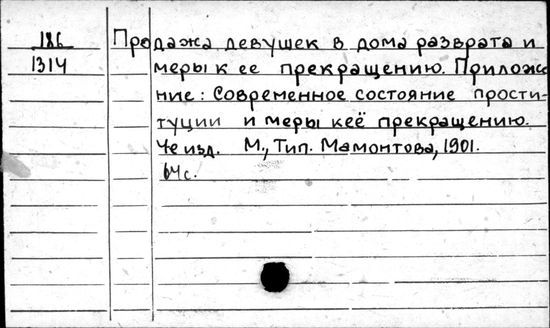 186 Продажа девушек в дома разврата и
1314 меры к ее прекращению. Приложе
ние: Современное состояние прости-
туции и меры к её прекращению.
4е изд. М., Тип. Мамонтова, 1901.
64с.